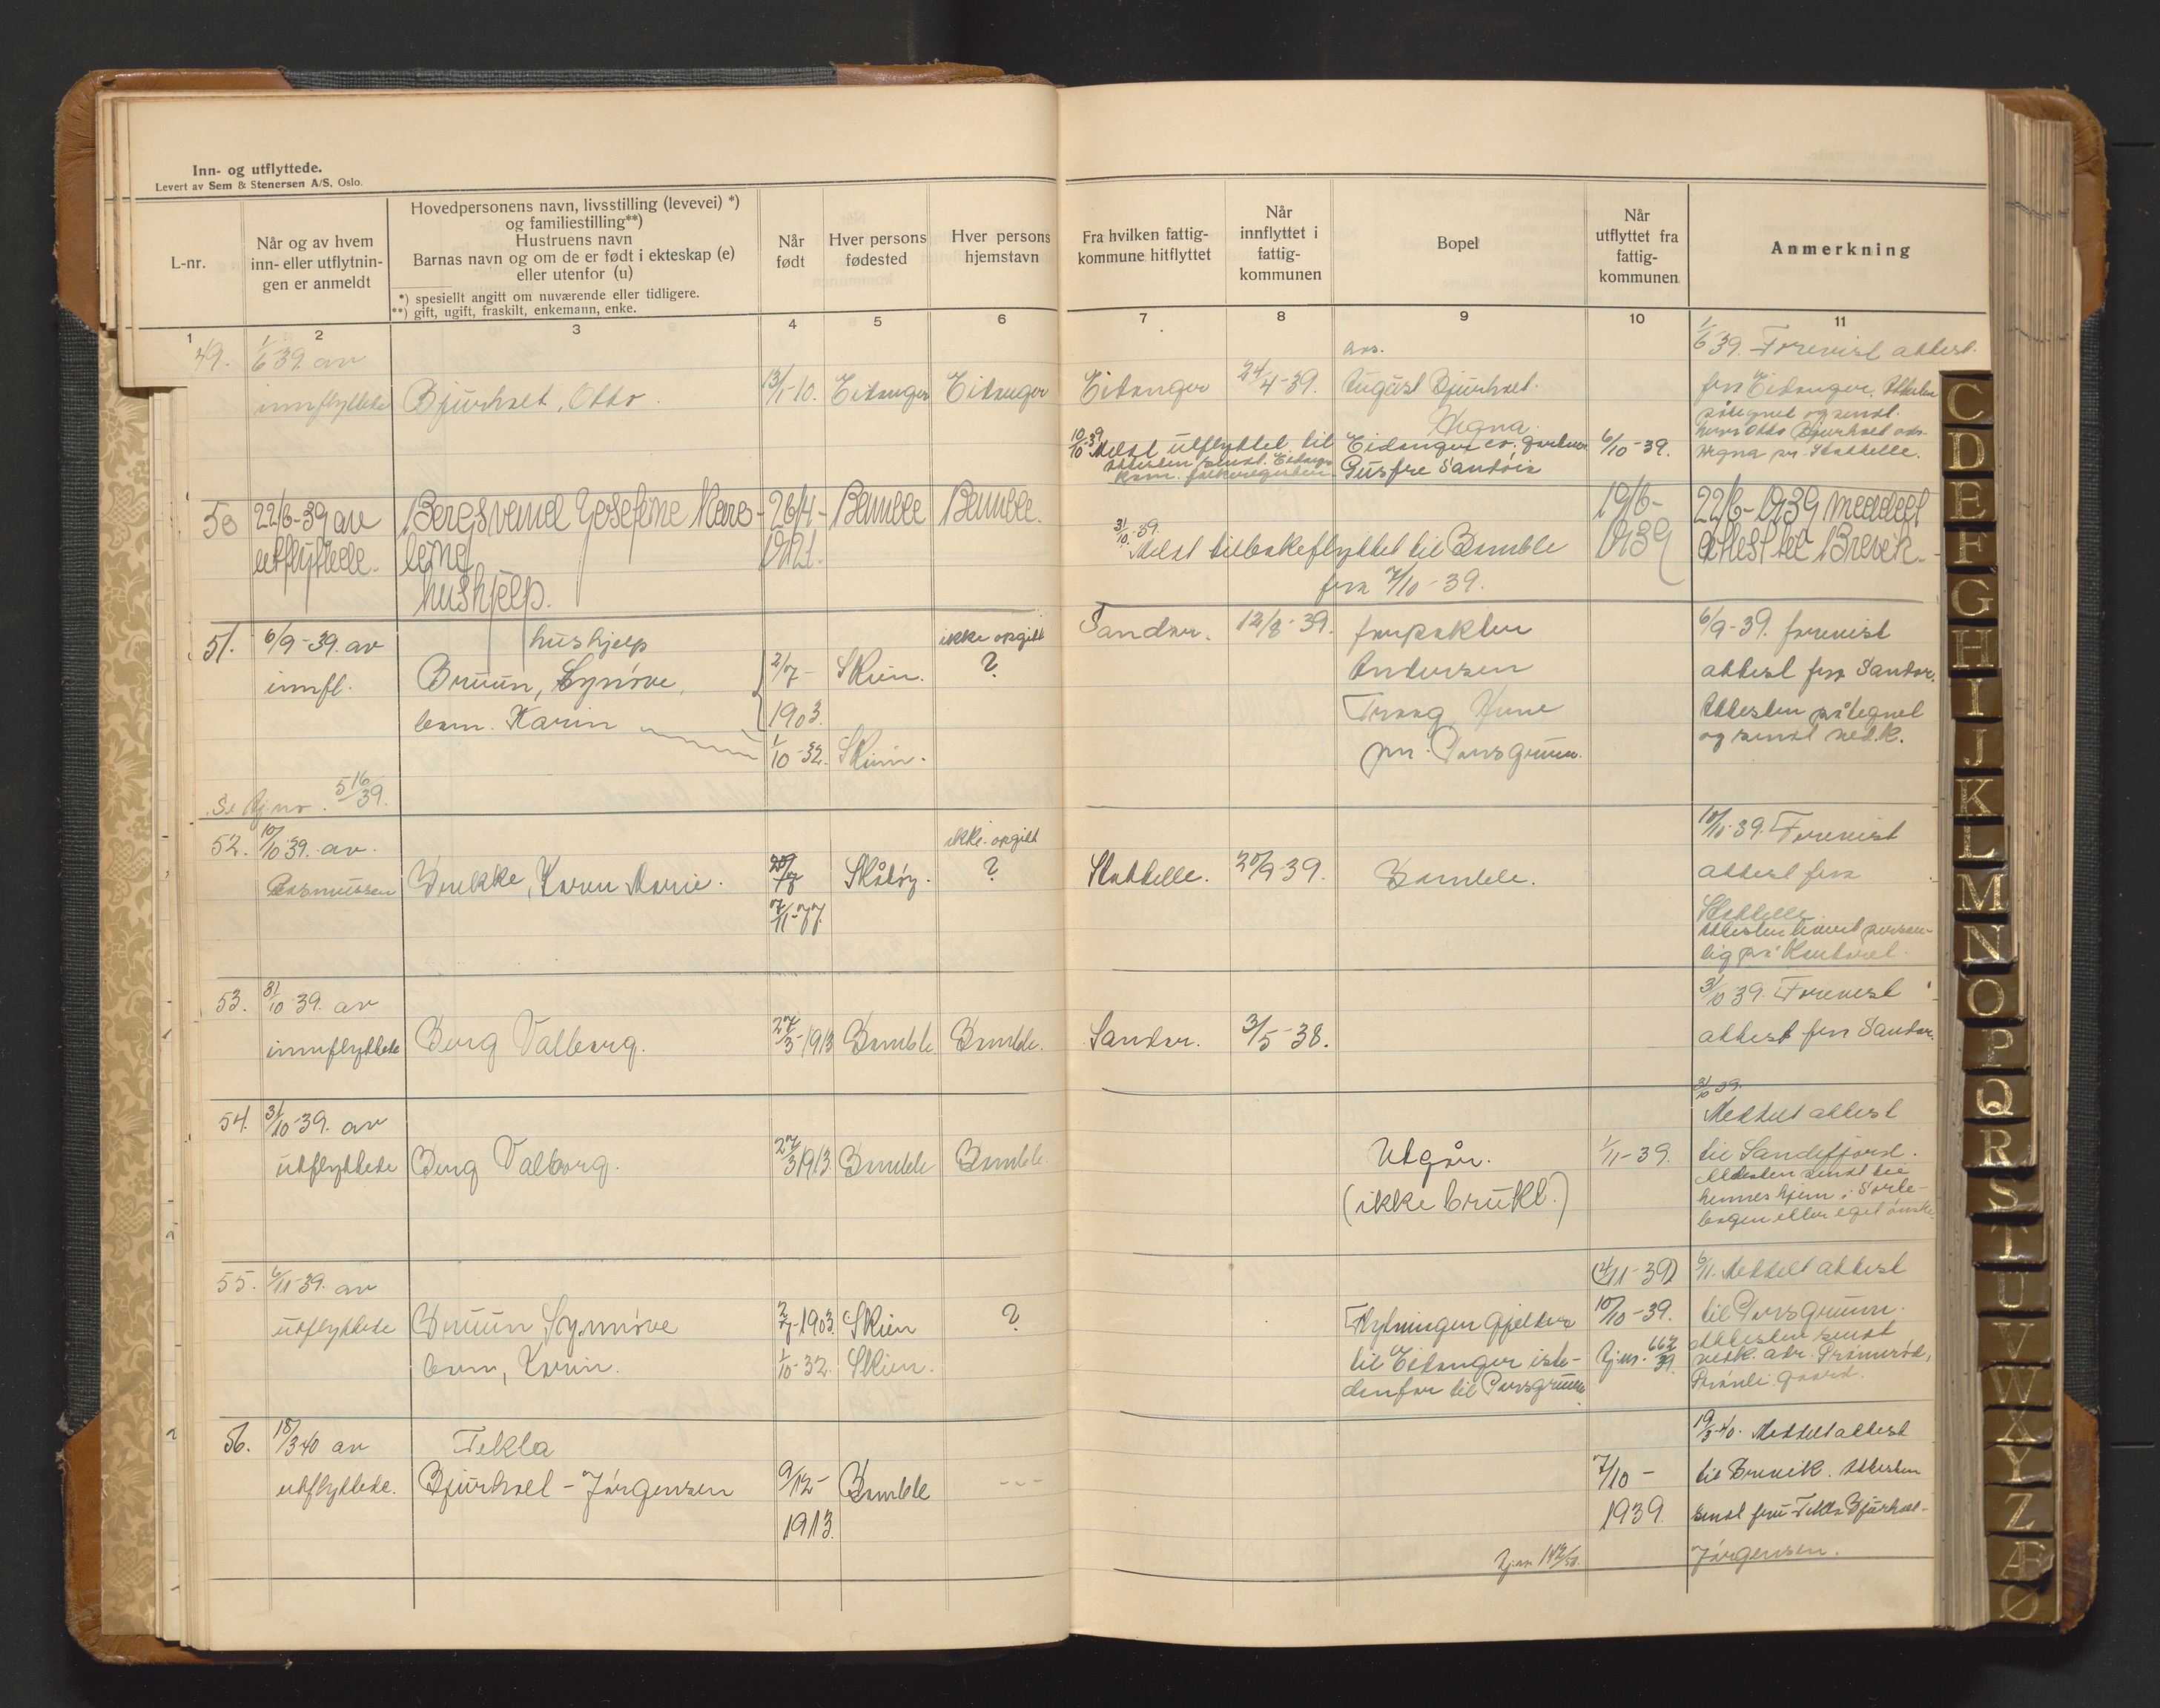 Inn- og utflyttede.
Levert av Sem & Stenersen A/S, Oslo.
L-nr.
Når og av hvem
inn- eller utflytnin-
gen er anmeldt
Hovedpersonens navn, livsstilling (levevei) *)
og familiestilling**)
Hustruens navn
Barnas navn og om de er født i ekteskap (e)
eller utenfor (u)
*) spesiellt angitt om nuværende eller tidligere.
**) gift, ugift, fraskilt, enkemann, enke.
Når
født
Hver persons
fødested
Hver persons
hjemstavn
Fra hvilken fattig-
kommune hitflyttet
Når
innflyttet i
fattig-
kommunen
Bopel
Når
utflyttet fra
fattig-
kommunen
Anmerkning
1 2 3 4 5 6 7 8 9 10 11
49. 1/6 39. av adr. 1/6 39. Forevist attest.
innflyttede Bjurholt, Otto. 13/1-10. Eidanger Eidanger Eidanger 24/4-39. August Bjurholt. fra Eidanger. Attesten
påtegnet og sendt
Otto Bjurholt adr.
10/10-39 Meldt utflyttet til Eidanger 6/10-39. pr. Stathelle.
Attesten sendt Eidanger
50 22/6-39 av Bergsvand Josefine Karo- 26/4- Bamble Bamble. 19/6- 22/6-1939 meddelt
utflyttede. line 1921. 31/10-39. Meldt tilbakeflyttet til Bamble 1939 attest til Brevik.
hushjelp. fra 7/10-39.
51. 6/9-39. av hushjelp ikke opgitt Sandar. 12/8-39. forpakter 6/9-39. forevist
innfl. Bruun, Synøve, 2/7- Skien. ? Andersen attest fra Sandar.
barn. Karin 1903. Attesten påtegnet
1/10-32. Skien. pr. Porsgrunn. og sendt vedk.
Se Bj.nr. 516/39.
52. 10/10 39. av. ikke opgitt 10/10-39. Forevist
Rasmussen Brukke, Karen Marie. Skåtøy. ? Stathelle. 20/9 39. Bamble. attest fra
7/11-77. Stathelle.
Attesten levert person-
lig på kontoret.
53. 31/10-39. av 31/10 39. Forevist
innflyttede Berg Valborg. 27/3-1913 Bamble Bamble. Sandar. 3/5-38. attest fra Sandar.
54. 31/10-39. av 31/10 39. Meddelt attest
utflyttede Berg Valborg. 27/3 1913 Bamble Bamble Utgår. 1/11-39. til Sandefjord.
(ikke brukt.) Attesten sendt til
hennes hjem i
eller eget ønske
55. 6/11-39. av 6/11. Meddelt attest
utflyttede Bruun, Synnøve 2/7-1903. Skien ? Flytningen gjelder 10/10-39. til Porsgrunn.
barn, Karin. 1/10-32. Skien. til Eidanger iste- Bj.nr. 662/39. Attesten sendt
denfor til Porsgrunn vedk. adr.
56. 18/3-40 av Tekla 19/3-40. Meddelt attest
utflyttede. Bjurholt - Jørgensen 9/12- Bamble --- 7/10- til Brevik. Attesten
1913. 1939. sendt fru Tekla Bjurholt-
Jørgensen.
C
D
E
F
G
H
I
J
K
L
M
N
O
P
Q
R
S
T
U
V
W
X
Y
Z
Æ
Ø